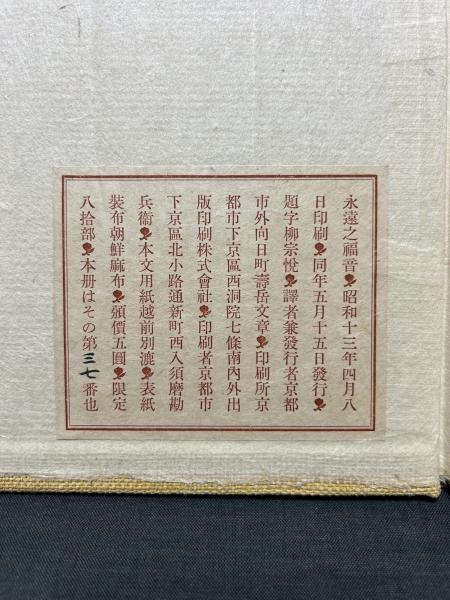 永遠之福音❧昭和十三年四月八
日印刷❧同年五月十五日發行❧
題字柳宗悅❧譯者兼發行者京都
市外向日町壽岳文章❧印刷所京
都市下京區西洞院七條南內外出
版印刷株式會社❧印刷者京都市
下京區北小路通新町西入須磨勘
兵衞❧本文用紙越前別漉❧表紙
裝布朝鮮麻布❧頒價五圓❧限定
八拾部❧本册はその第三七番也